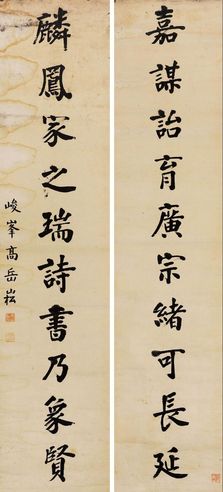 嘉謀詒育廣宗緒可長延
麟鳳家之瑞詩書乃象賢
峻峯高岳崧